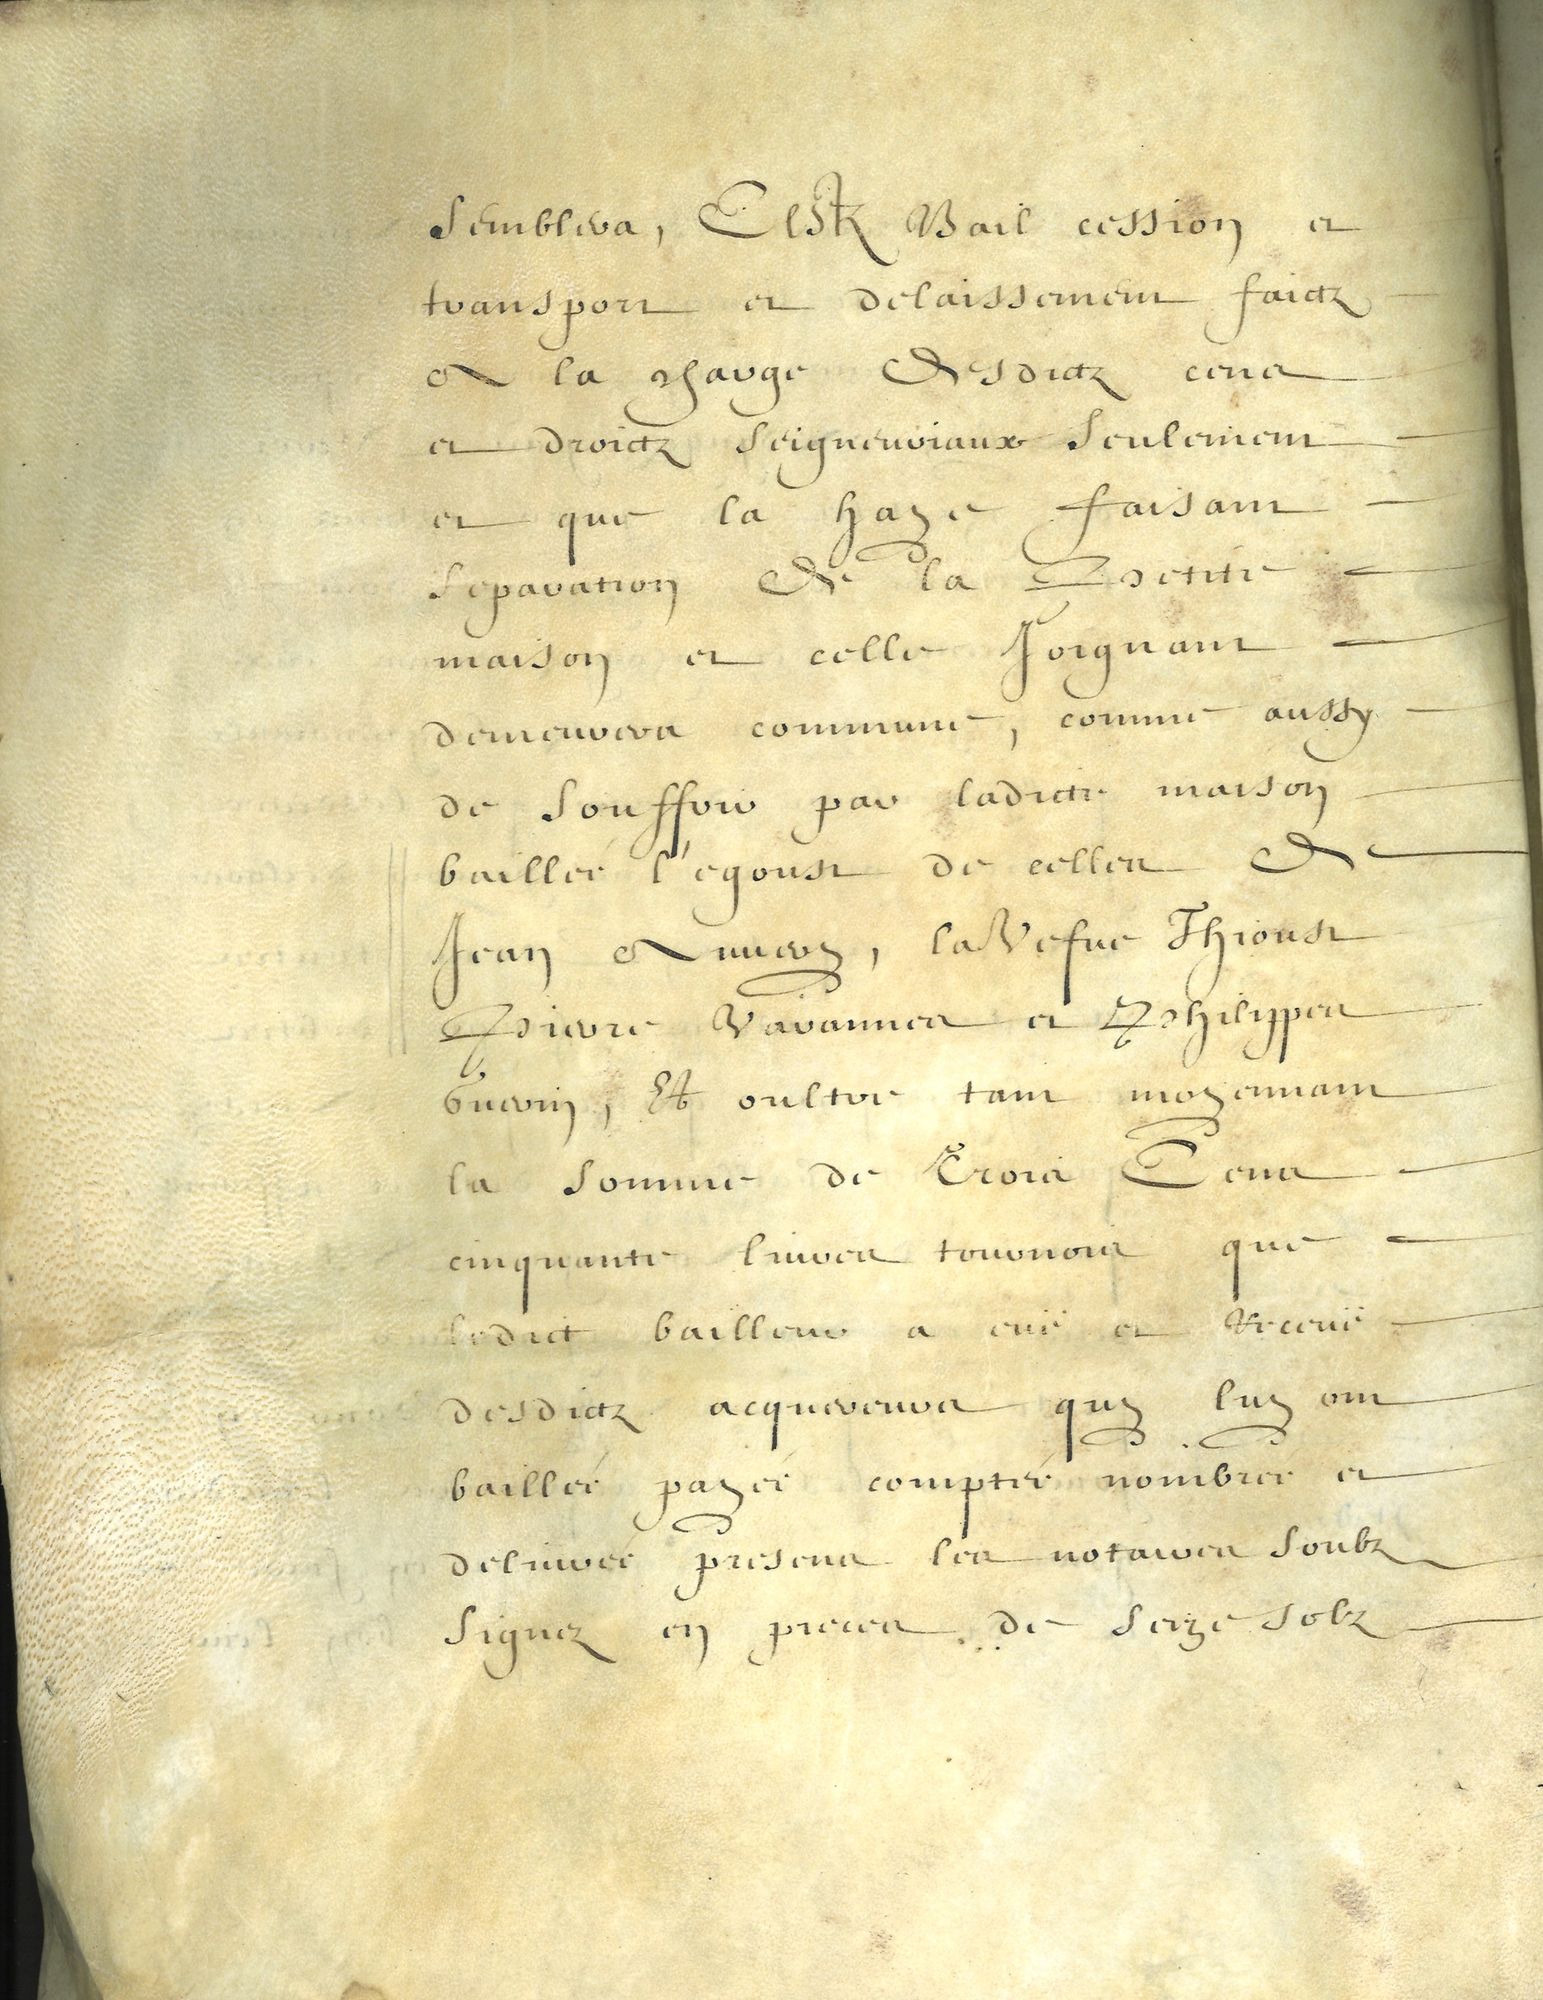 semblera, Cesdictz Bail cession et
transport et delaissement faictz
A la charge Desdictz cens
et droictz seigneuriaux seulement
et que la haye faisant
separation De la Petite
maison et celle Joignant
demeurera commune, comme aussy
de souffrir par ladicte maison
baillée l'egoust de celles De
Jean laVefue Thioust
Pierre Varannes et Philippes
Guerin, Et oultre tant moyennant
la somme de Trois Cens
cinquante liures tournois que
ledict bailleur a eüe et Receüe
desdictz acquereurs quy luy ont
baillée payée comptée nombrée et
deliurée presens les notaires soubz
signez en pieces de seize solz